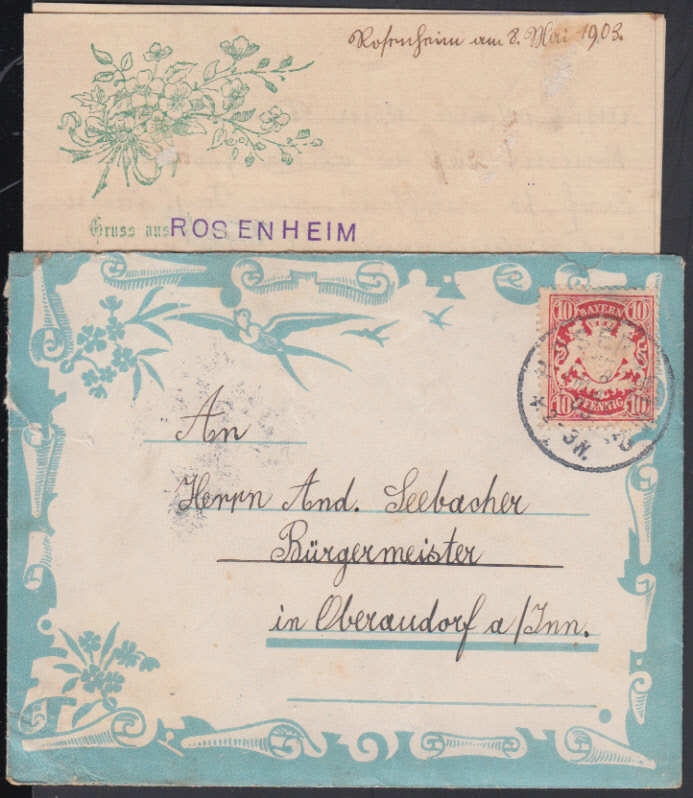 Rosenheim am 8. Mai 1903.
Gruss aus ROSENHEIM
10 BAYERN 10
10 PFENNIG 10
An
Herrn And. Seebacher
Bürgermeister
in Oberaudorf a/Inn.